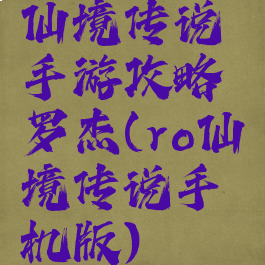 仙境传说
手游攻略
罗杰(ro仙
境传说手
机版)